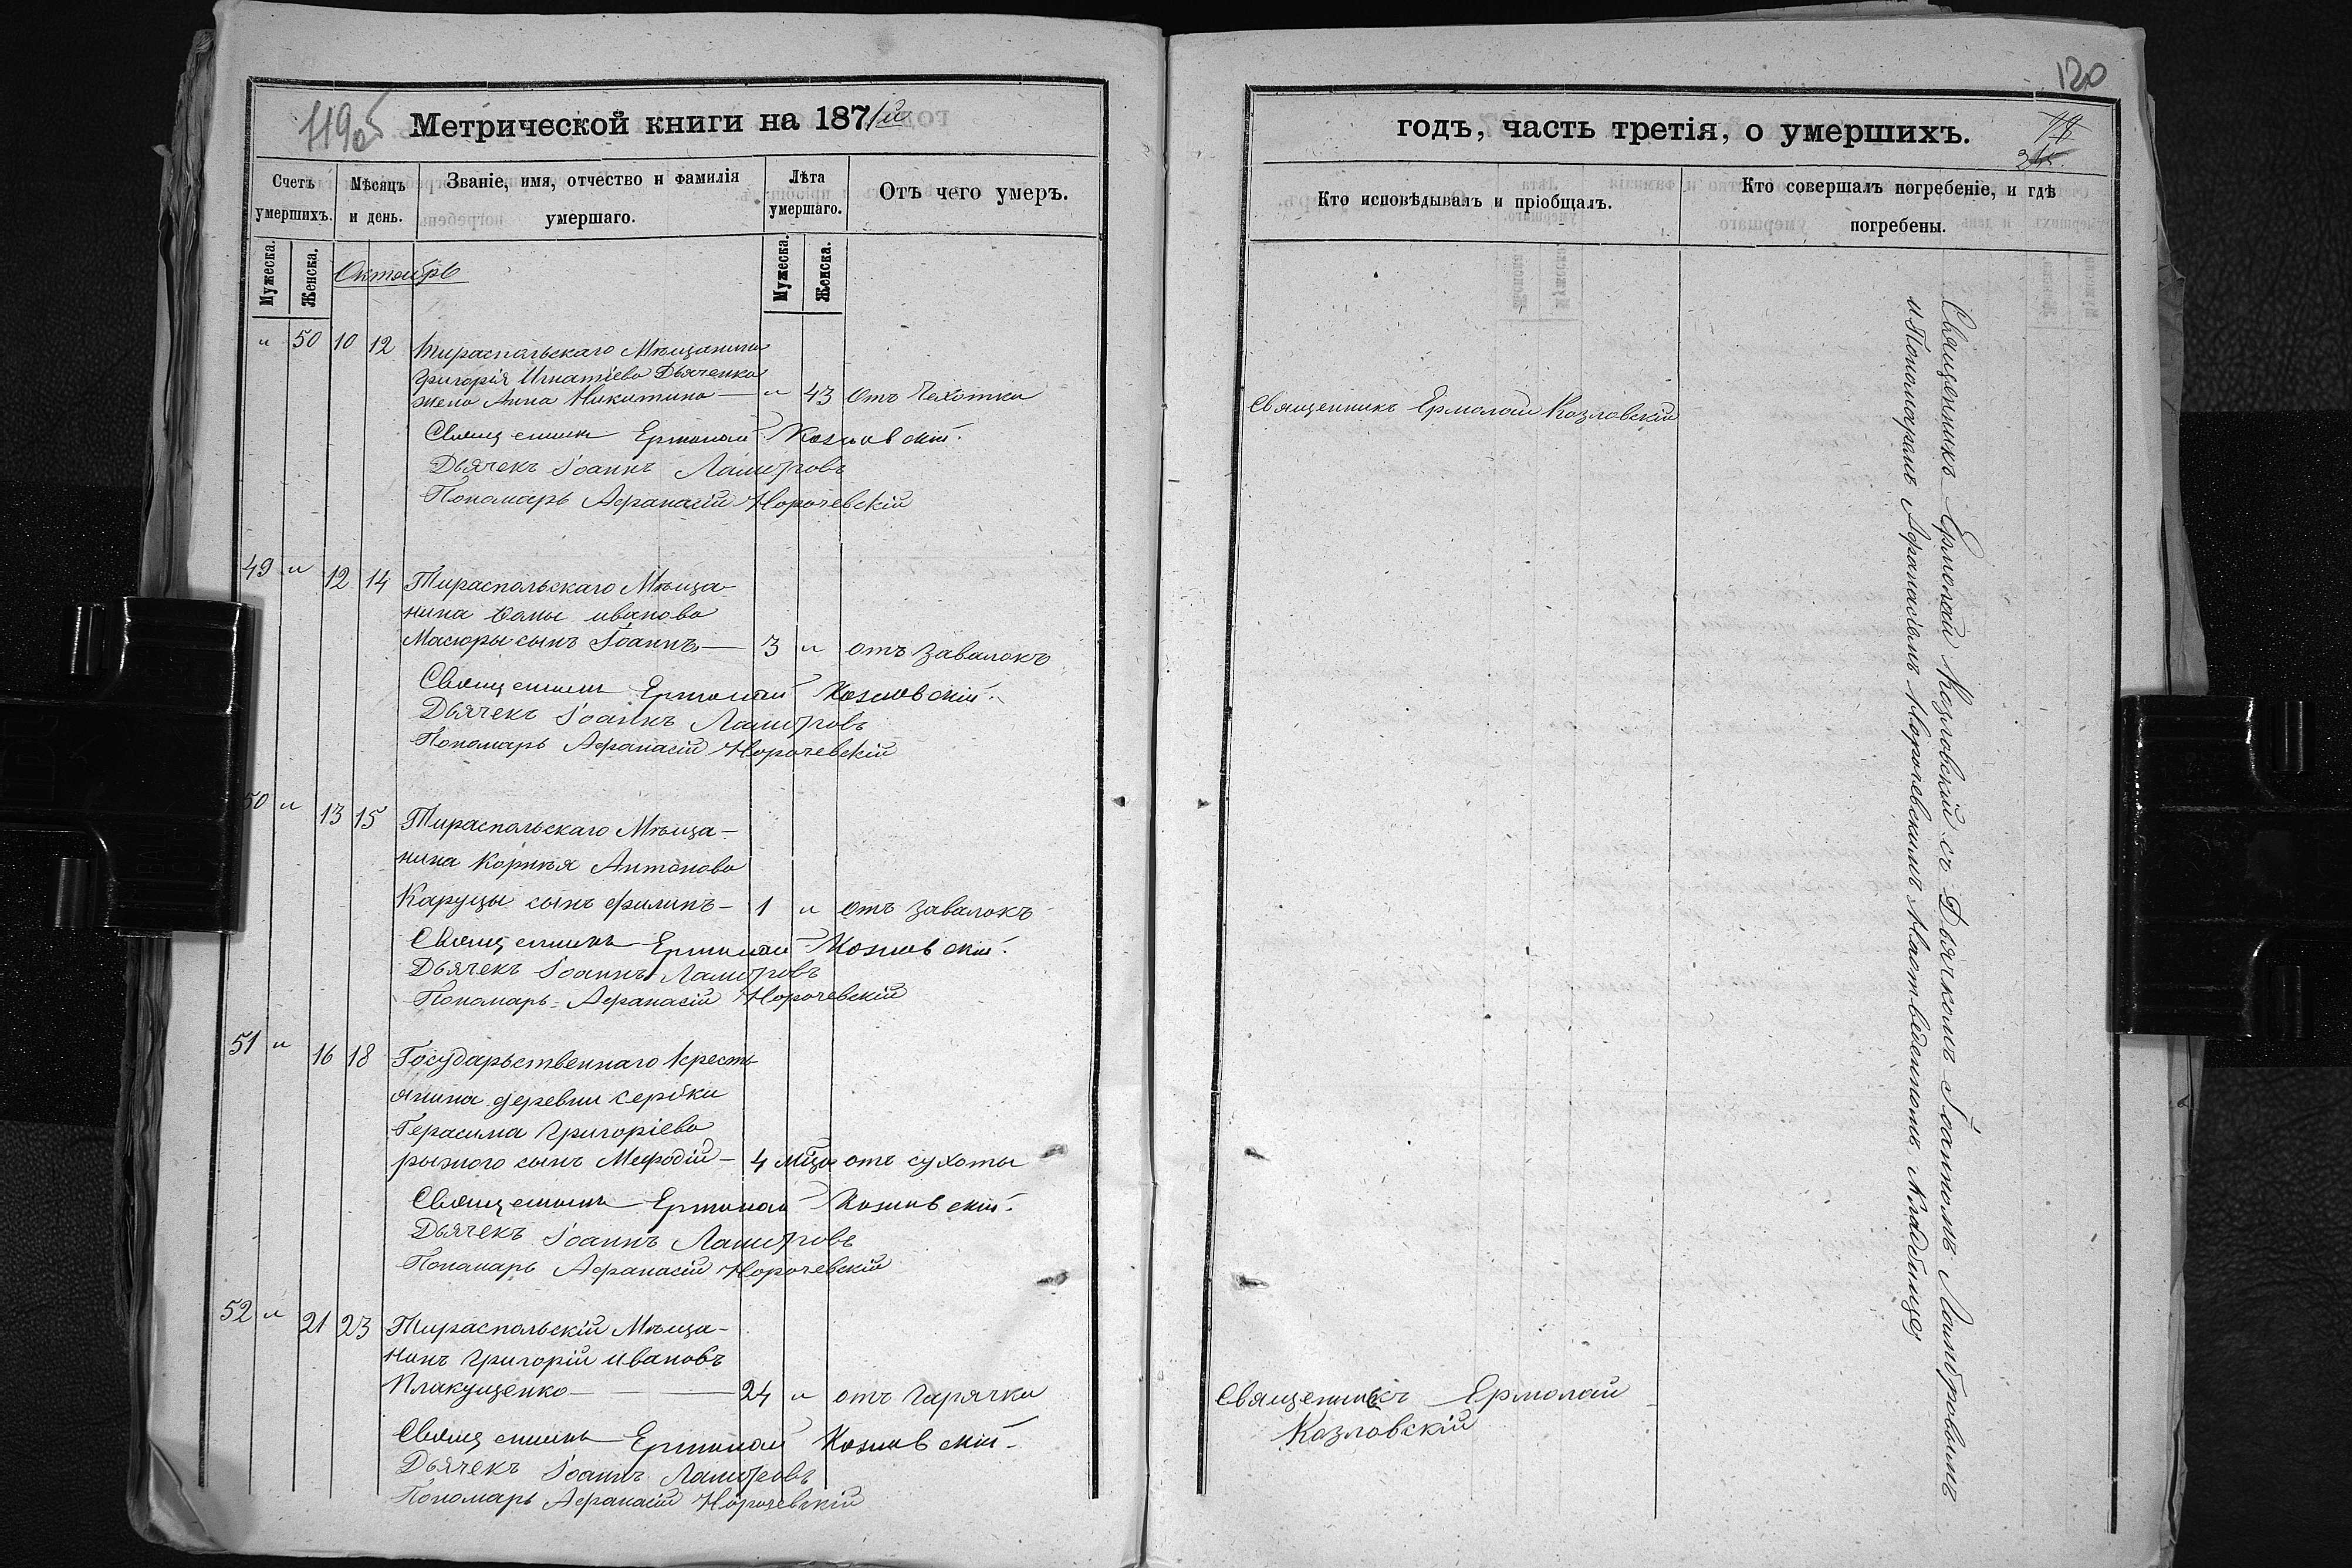 119об
Метрической книги на 1871й
Счетъ умершихъ.
Мѣсяцъ и день.
Званіе, имя, отчество и фамилія умершаго.
Лѣта умершаго.
Отъ чего умеръ.
Мужеска.
Женска.
Мужеска.
Женска.
Октябрь
" 50 10 12 Тираспольскаго Мѣщанина
Григорія Игнатіева Дьяченка
жена Анна Никитина — " 43 отъ Чехотки
Священникъ Ермолай Козловскій.
Дьячекъ Іоаннъ
Пономарь Афанасій Норочевскій
49 " 12 14 Тираспольскаго Мѣща-
нина Ѳомы иванова
Масюры сынъ Іоаннъ — 3 " отъ завалокъ
Священникъ Ермолай Козловскій.
Дьячекъ Іоаннъ
Пономарь Афанасій Норочевскій
50 " 13 15 Тираспольскаго Мѣща-
нина Корнѣя Антонова
Каруцы сынъ Филипъ — 1 " отъ завалокъ
Священникъ Ермолай Козловскій.
Дьячекъ Іоаннъ
Пономарь Афанасій Норочевскій
51 " 16 18 Государьственнаго Кресть-
янина деревни сербки
Герасима Григоріева
рыжого сынъ Мефодій — 4 мца отъ сухоты
Священникъ Ермолай Козловскій.
Дьячекъ Іоаннъ
Пономарь Афанасій Норочевскій
52 " 21 23 Тираспольскій Мѣща-
нинъ Григорій ивановъ
Плакущенко — 24 " отъ гарячки
Священникъ Ермолай Козловскій.
Дьячекъ Іоаннъ
Пономарь Афанасій Норочевскій
120
годъ, часть третія, о умершихъ.
Кто исповѣдывалъ и пріобщалъ.
Кто совершалъ погребеніе, и гдѣ погребены.
Священникъ Ермолай Козловскій
Священникъ Ермолай
Козловскій
Священникъ Ермолай Козловскій съ Дьячкомъ Іоанномъ
и Пономаремъ Афанасіемъ Норочевскимъ кладбище